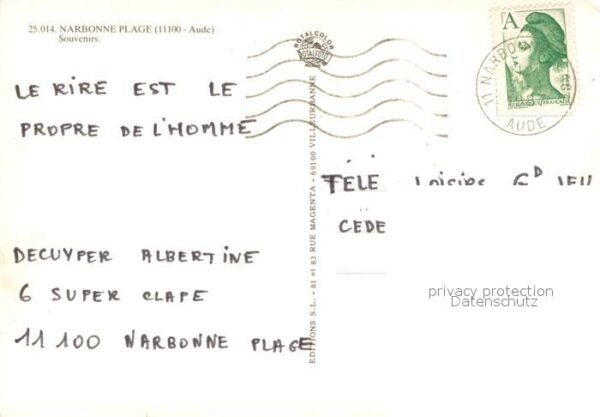 25.014. NARBONNE PLAGE (11100 - Aude)
Souvenirs.
ROTALCOLOR
ROTALFOTO
A
11 NARBO
AUDE
LE RIRE EST LE
PROPRE DE L'HOMME
EDITIONS S.L. - 81 et 83 RUE MAGENTA - 69100 VILLEURBANNE
TÉLÉ Loisirs GD JEU
CEDE
DECUYPER ALBERTINE
6 SUPER CLAPE
11100 NARBONNE PLAGE
privacy protection
Datenschutz